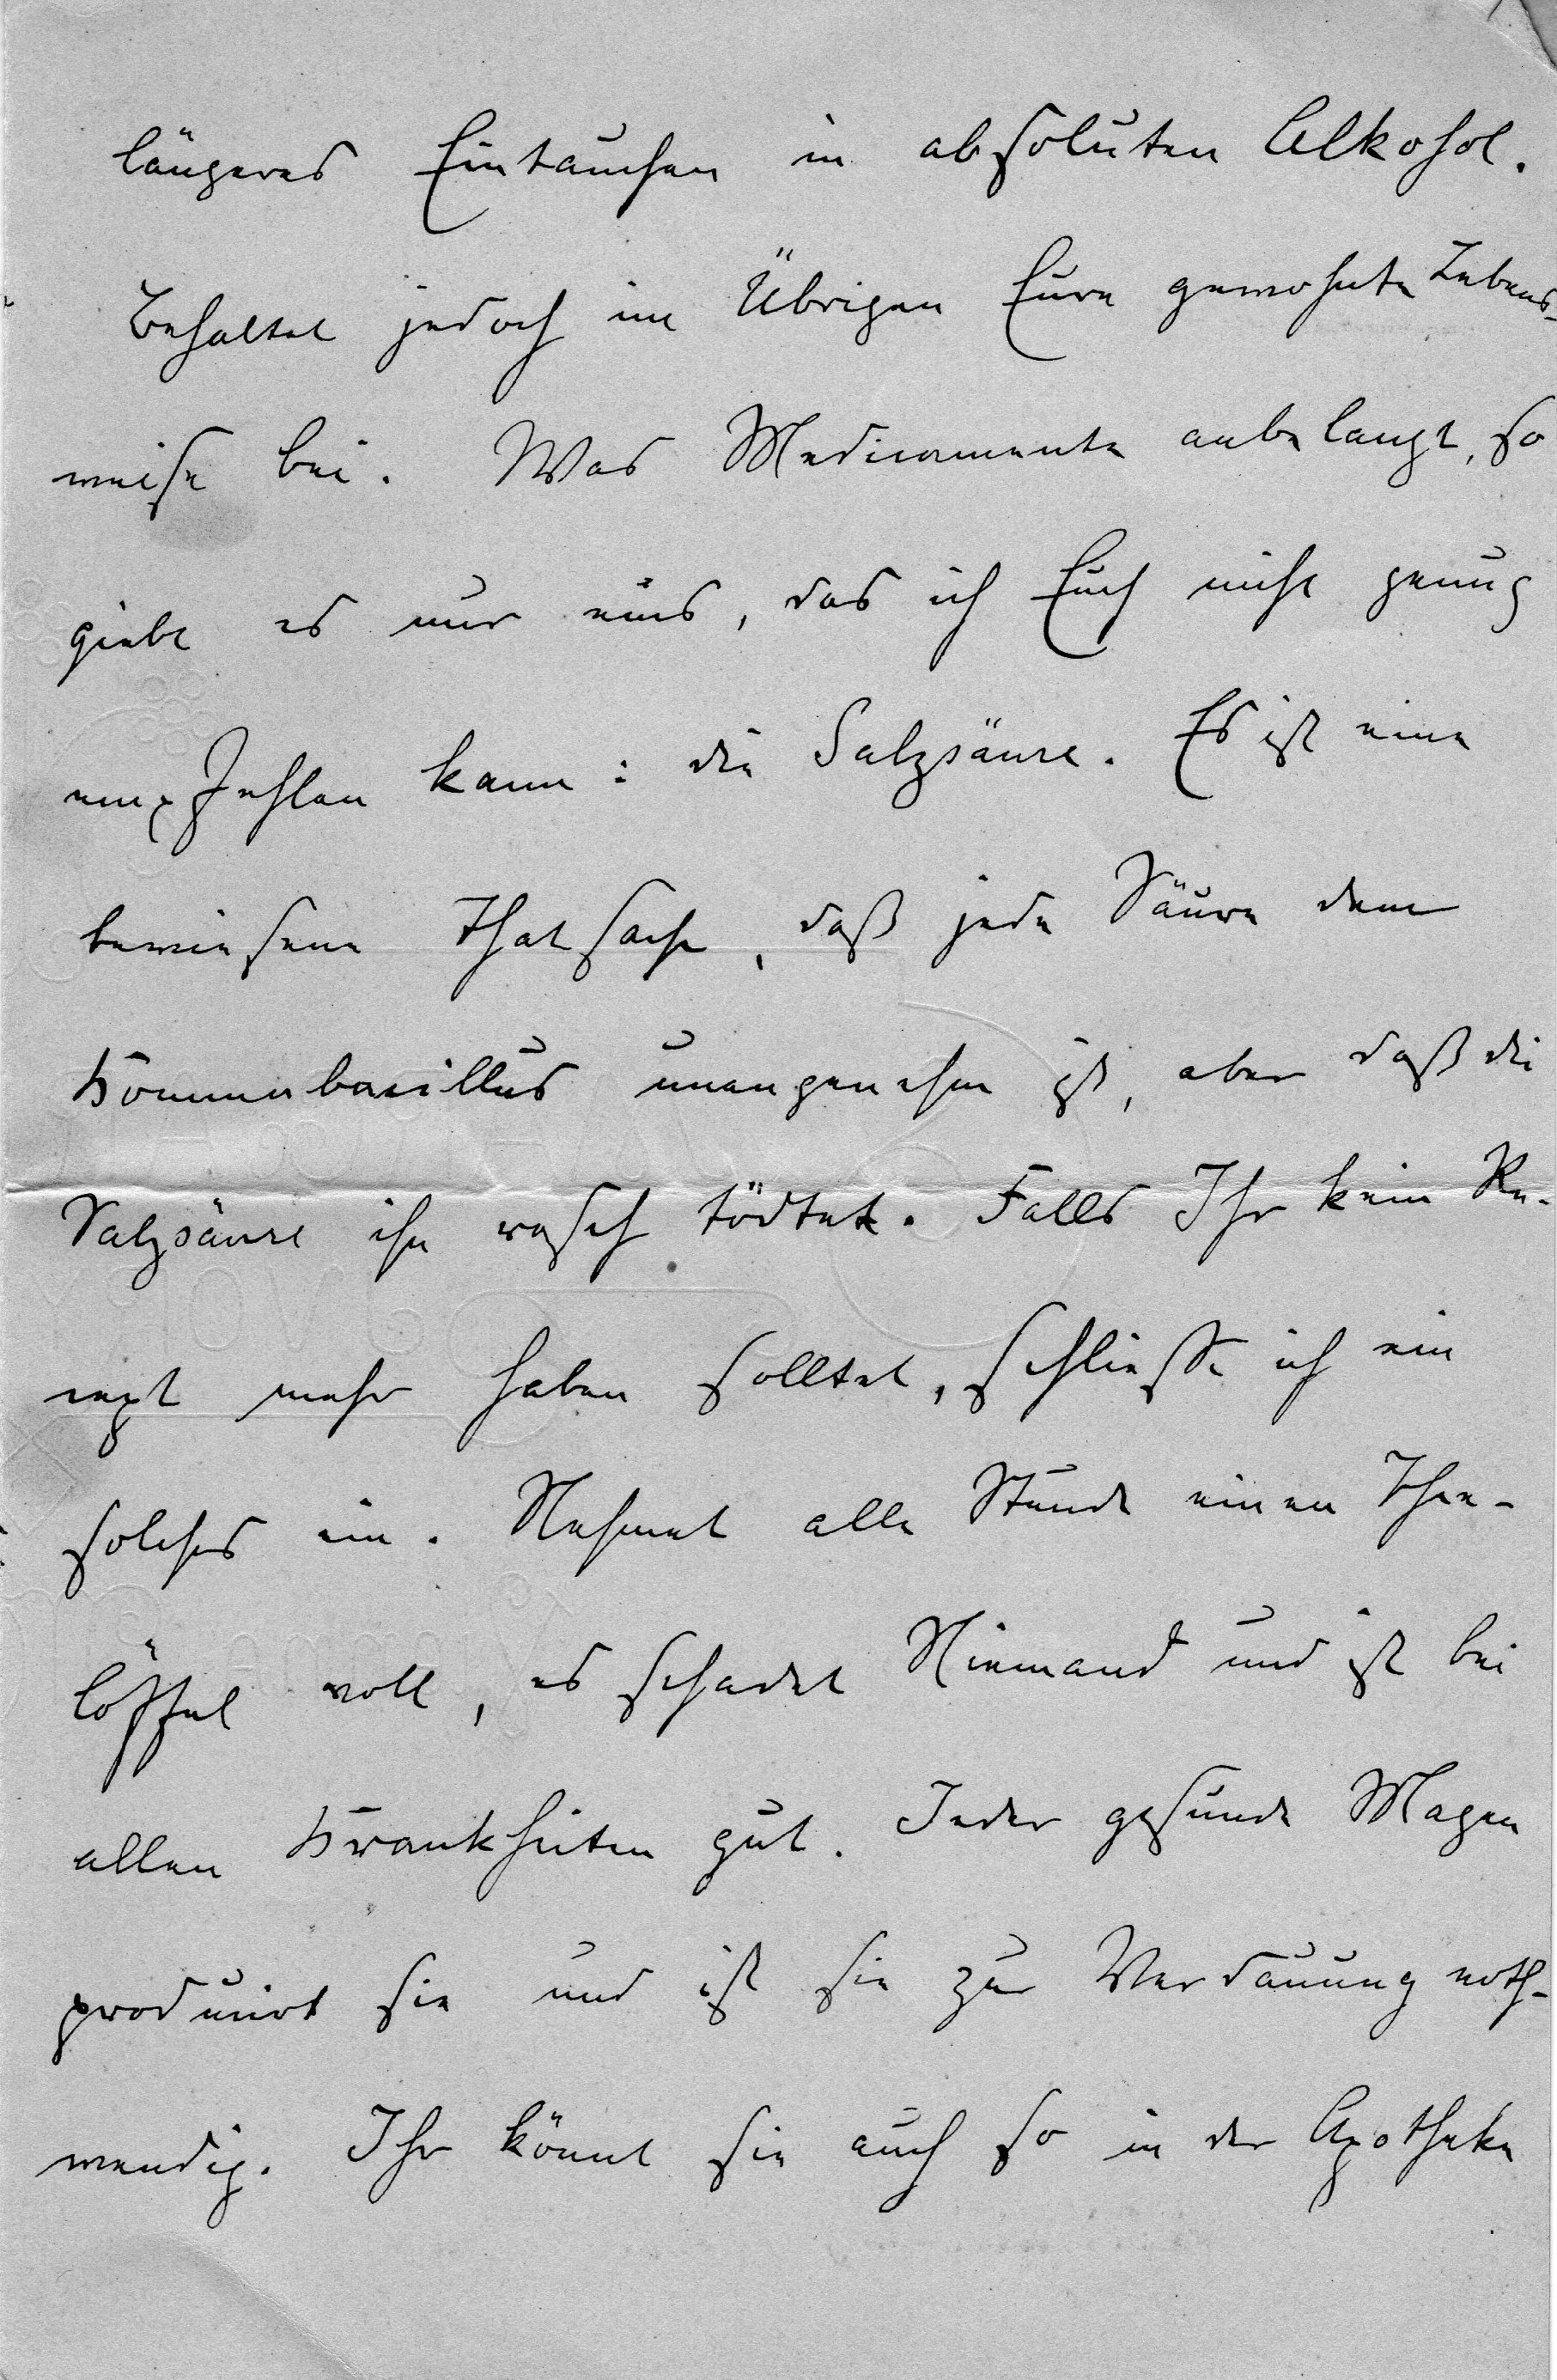 längeres Eintauchen in absoluten Alkohol.
Behaltet jedoch im Übrigen Eure gewohnte Lebens-
weise bei. Was Medicamente anbelangt, so
giebt es nur eins, das ich Euch nicht genug
empfehlen kann: die Salzsäure. Es ist eine
bewiesene Thatsache, daß jede Säure dem
Kommabacillus unangenehm ist, aber daß die
Salzsäure ihn rasch tödtet. Falls Ihr kein Re-
cept mehr haben solltet, schließe ich ein
solches ein. Nehmet alle Stunde einen Thee-
löffel voll, es schadet Niemand und ist bei
allen Krankheiten gut. Jeder gesunde Magen
producirt sie und ist sie zur Verdauung noth-
wendig. Ihr könnt sie auch so in der Apotheke